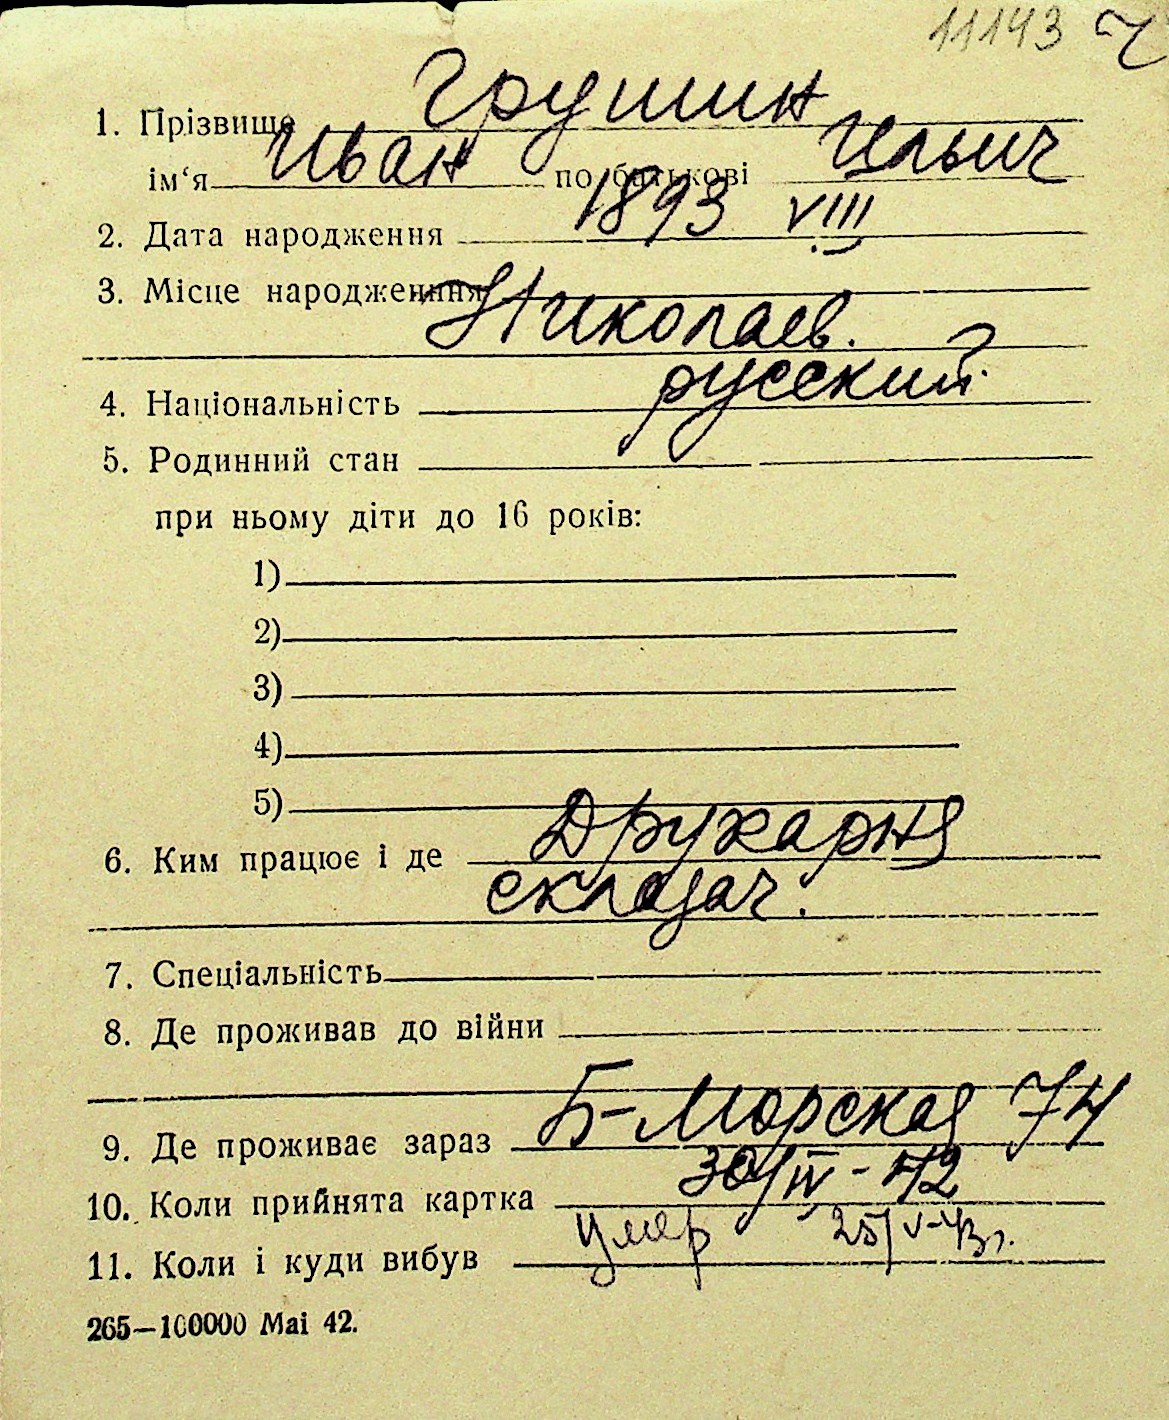 11143
1. Прізвище Грушин
ім‘я Иван по батькові Ильич
2. Дата народження 1893 VIII
3. Місце народження Николаев.
4. Національність русский.
5. Родинний стан
при ньому діти до 16 років:
1)
2)
3)
4)
5)
6. Ким працює і де Друкарня
складач.
7. Спеціальність
8. Де проживав до війни
9. Де проживає зараз Б-Морская 74
10. Коли прийнята картка 30/IV-42
11. Коли і куди вибув умер 25/V-43г.
265—100000 Mai 42.